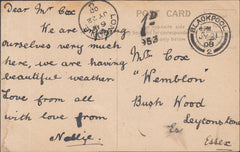 POST CARD
Dear Mr Cox
We are enjoying
ourselves very much
here, we are having
beautiful weather
Love from all
with love from
Nellie.
1D
953
BLACKPOOL
Mr Cox
"Wemblon"
Bush Wood
Leytonstone
Essex